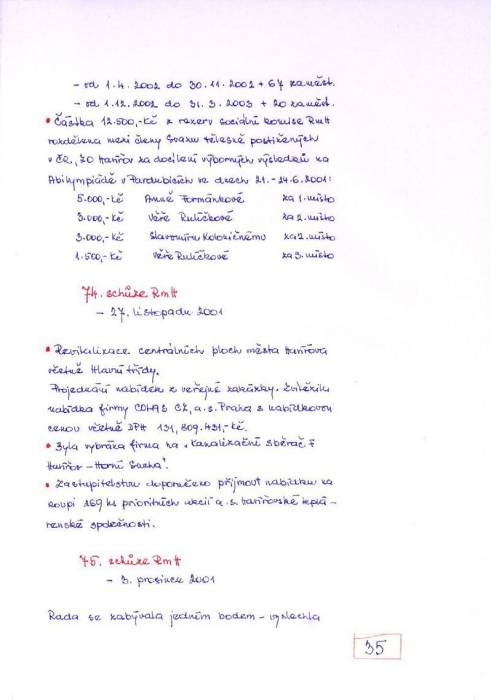 - od 1.4. 2002 do 30.11.2002 + 67 zaměst.
- od 1.12.2002 do 31.3.2003 + 20 zaměst.
• Částka 12.500,-Kč z rezerv sociální komise RmH
rozdělena mezi členy Svazu tělesně postižených
v ČR, ZO Havířov za docílení výborných výsledků na
Abilympiádě v Pardubicích ve dnech 21.-24.6.2001:
5.000,-Kč Anně Formánkové za 1. místo
3.000,-Kč Věře Ruličkové za 2. místo
3.000,-Kč Slavomíru Kolozičnému za 2. místo
1.500,-Kč Věře Ruličkové za 3. místo
74. schůze RmH
- 27. listopadu 2001
• Revitalizace centrálních ploch města Havířova
včetně Hlavní třídy.
Projednání nabídek z veřejné zakázky. Zvítězila
nabídka firmy COLAS CZ, a.s. Praha s nabídkovou
cenou včetně DPH 131,809.431,-Kč.
• Byla vybrána firma na "Kanalizační sběrač F
Havířov - Horní Suchá".
• Zastupitelstvu doporučeno přijmout nabídku na
koupi 169 ks prioritních akcií a.s. Havířovské teplá-
renské společnosti.
75. schůze RmH
- 3. prosince 2001
Rada se zabývala jedním bodem - vyslechla
35